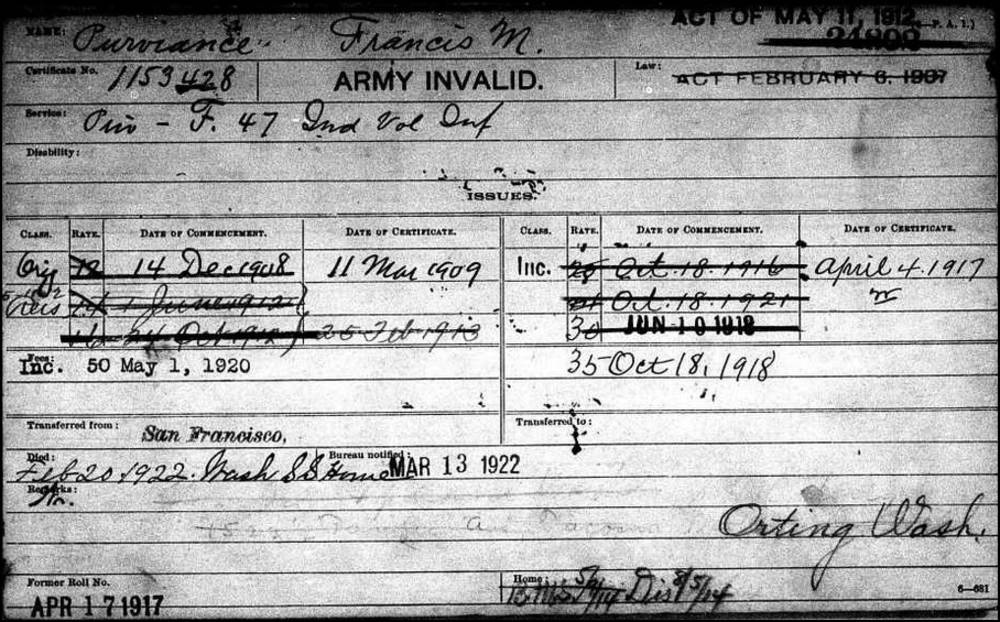 ACT OF MAY 11, 1912
NAME: Purviance Francis M. 24808
Certificate No. 1153428 ARMY INVALID. Law: ACT FEBRUARY 6. 1907
Service: Priv - F. 47 Ind Vol Inf
Disability:
ISSUES.
CLASS. RATE. DATE OF COMMENCEMENT. DATE OF CERTIFICATE. CLASS. RATE. DATE OF COMMENCEMENT. DATE OF CERTIFICATE.
Orig 12 14 Dec 1908 11 Mar 1909 Inc. Oct. 18. 1916 April 4. 1917
1 June 1912 Oct. 18. 1921
16 24 Oct 1912 25 Feb 1913 30 JUN 10 1918
Fees:
Inc. 50 May 1, 1920 35 Oct 18, 1918
Transferred from: San Francisco, Transferred to:
Died: Feb 20 1922. Wash S S Home Bureau notified: MAR 13 1922
Remarks:
Tacoma
Orting Wash.
Former Roll No. Home:
APR 17 1917 Dis 8/5/14
6—681